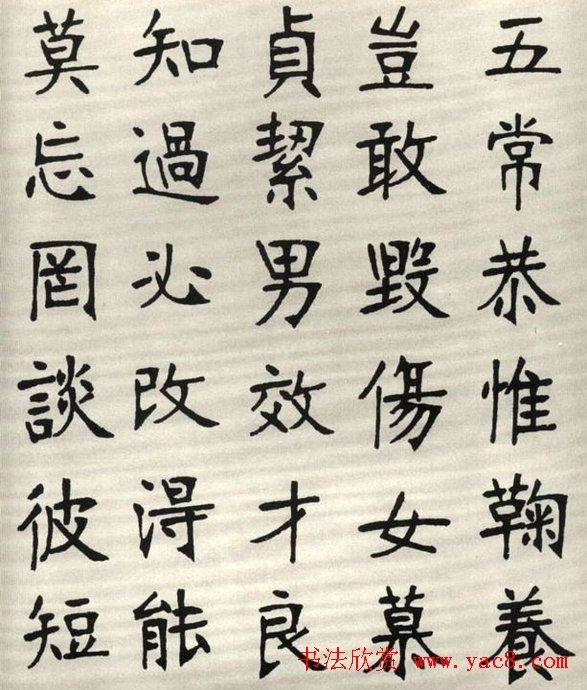 五常恭惟鞠養
豈敢毀傷女慕
貞絜男效才良
知過必改得能
莫忘罔談彼短
书法欣赏 www.yac8.com